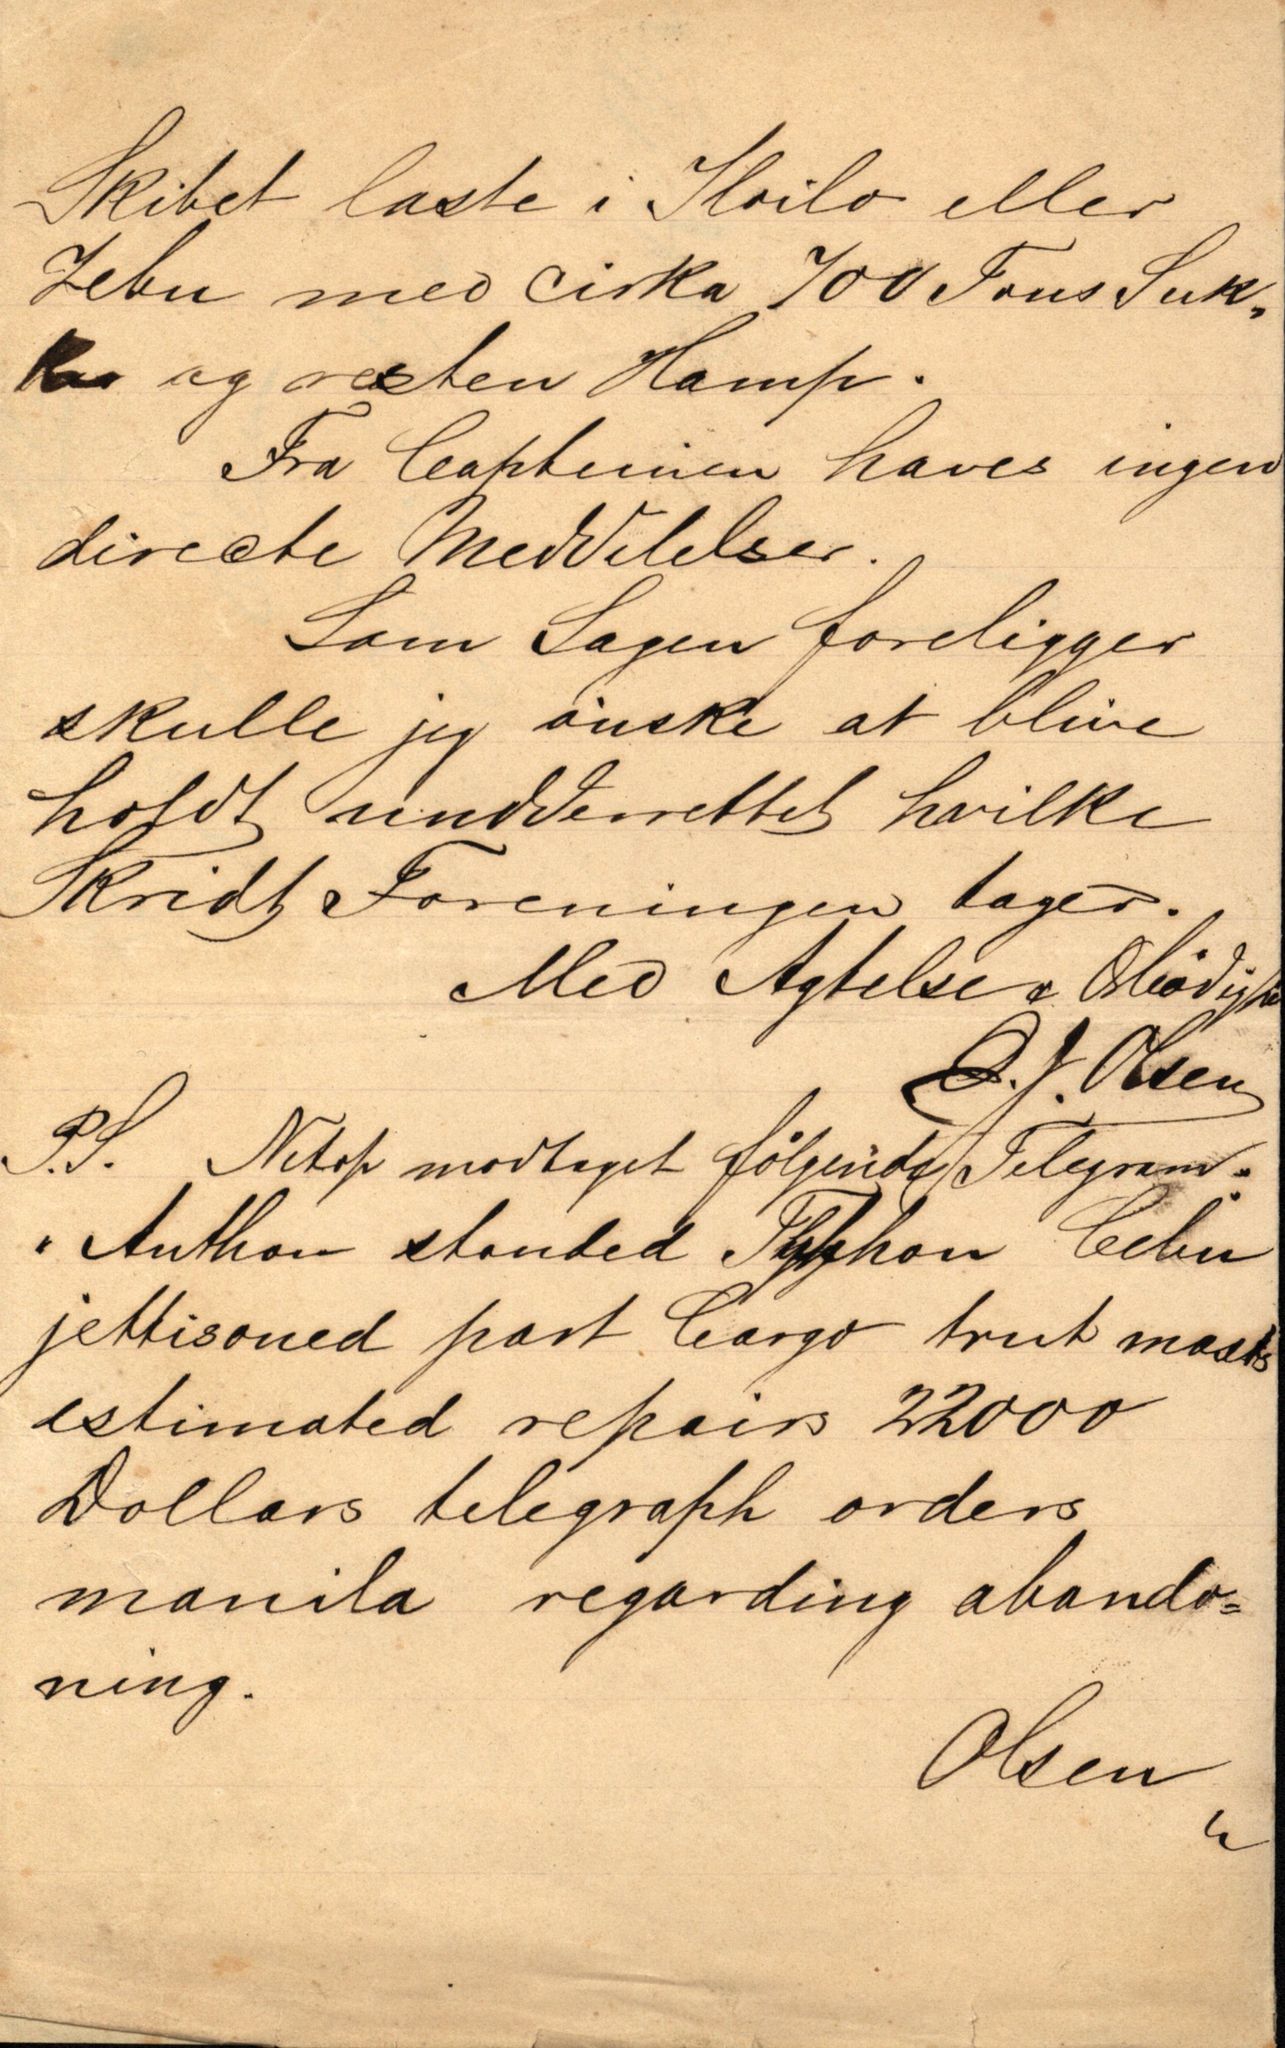 Skibet laste i Iloilo eller
Zebu med cirka 700 Tons Suk-
ker og resten Hamp.
Fra Capteinen haves ingen
directe Meddelelser.
Som Sagen foreligger
skulle jeg ønske at blive
holdt undderrettet hvilke
Skridt Foreningen tager.
Med Agtelse & Ærbødighed
O. J. Olsen
P.S. Netop modtaget følgende Telegram:
"Authon stonded Typhon Cebu
jettisoned part Cargo trut masts
estimated repairs 22000
Dollars telegraph orders
manila regarding abando=
ning.
Olsen